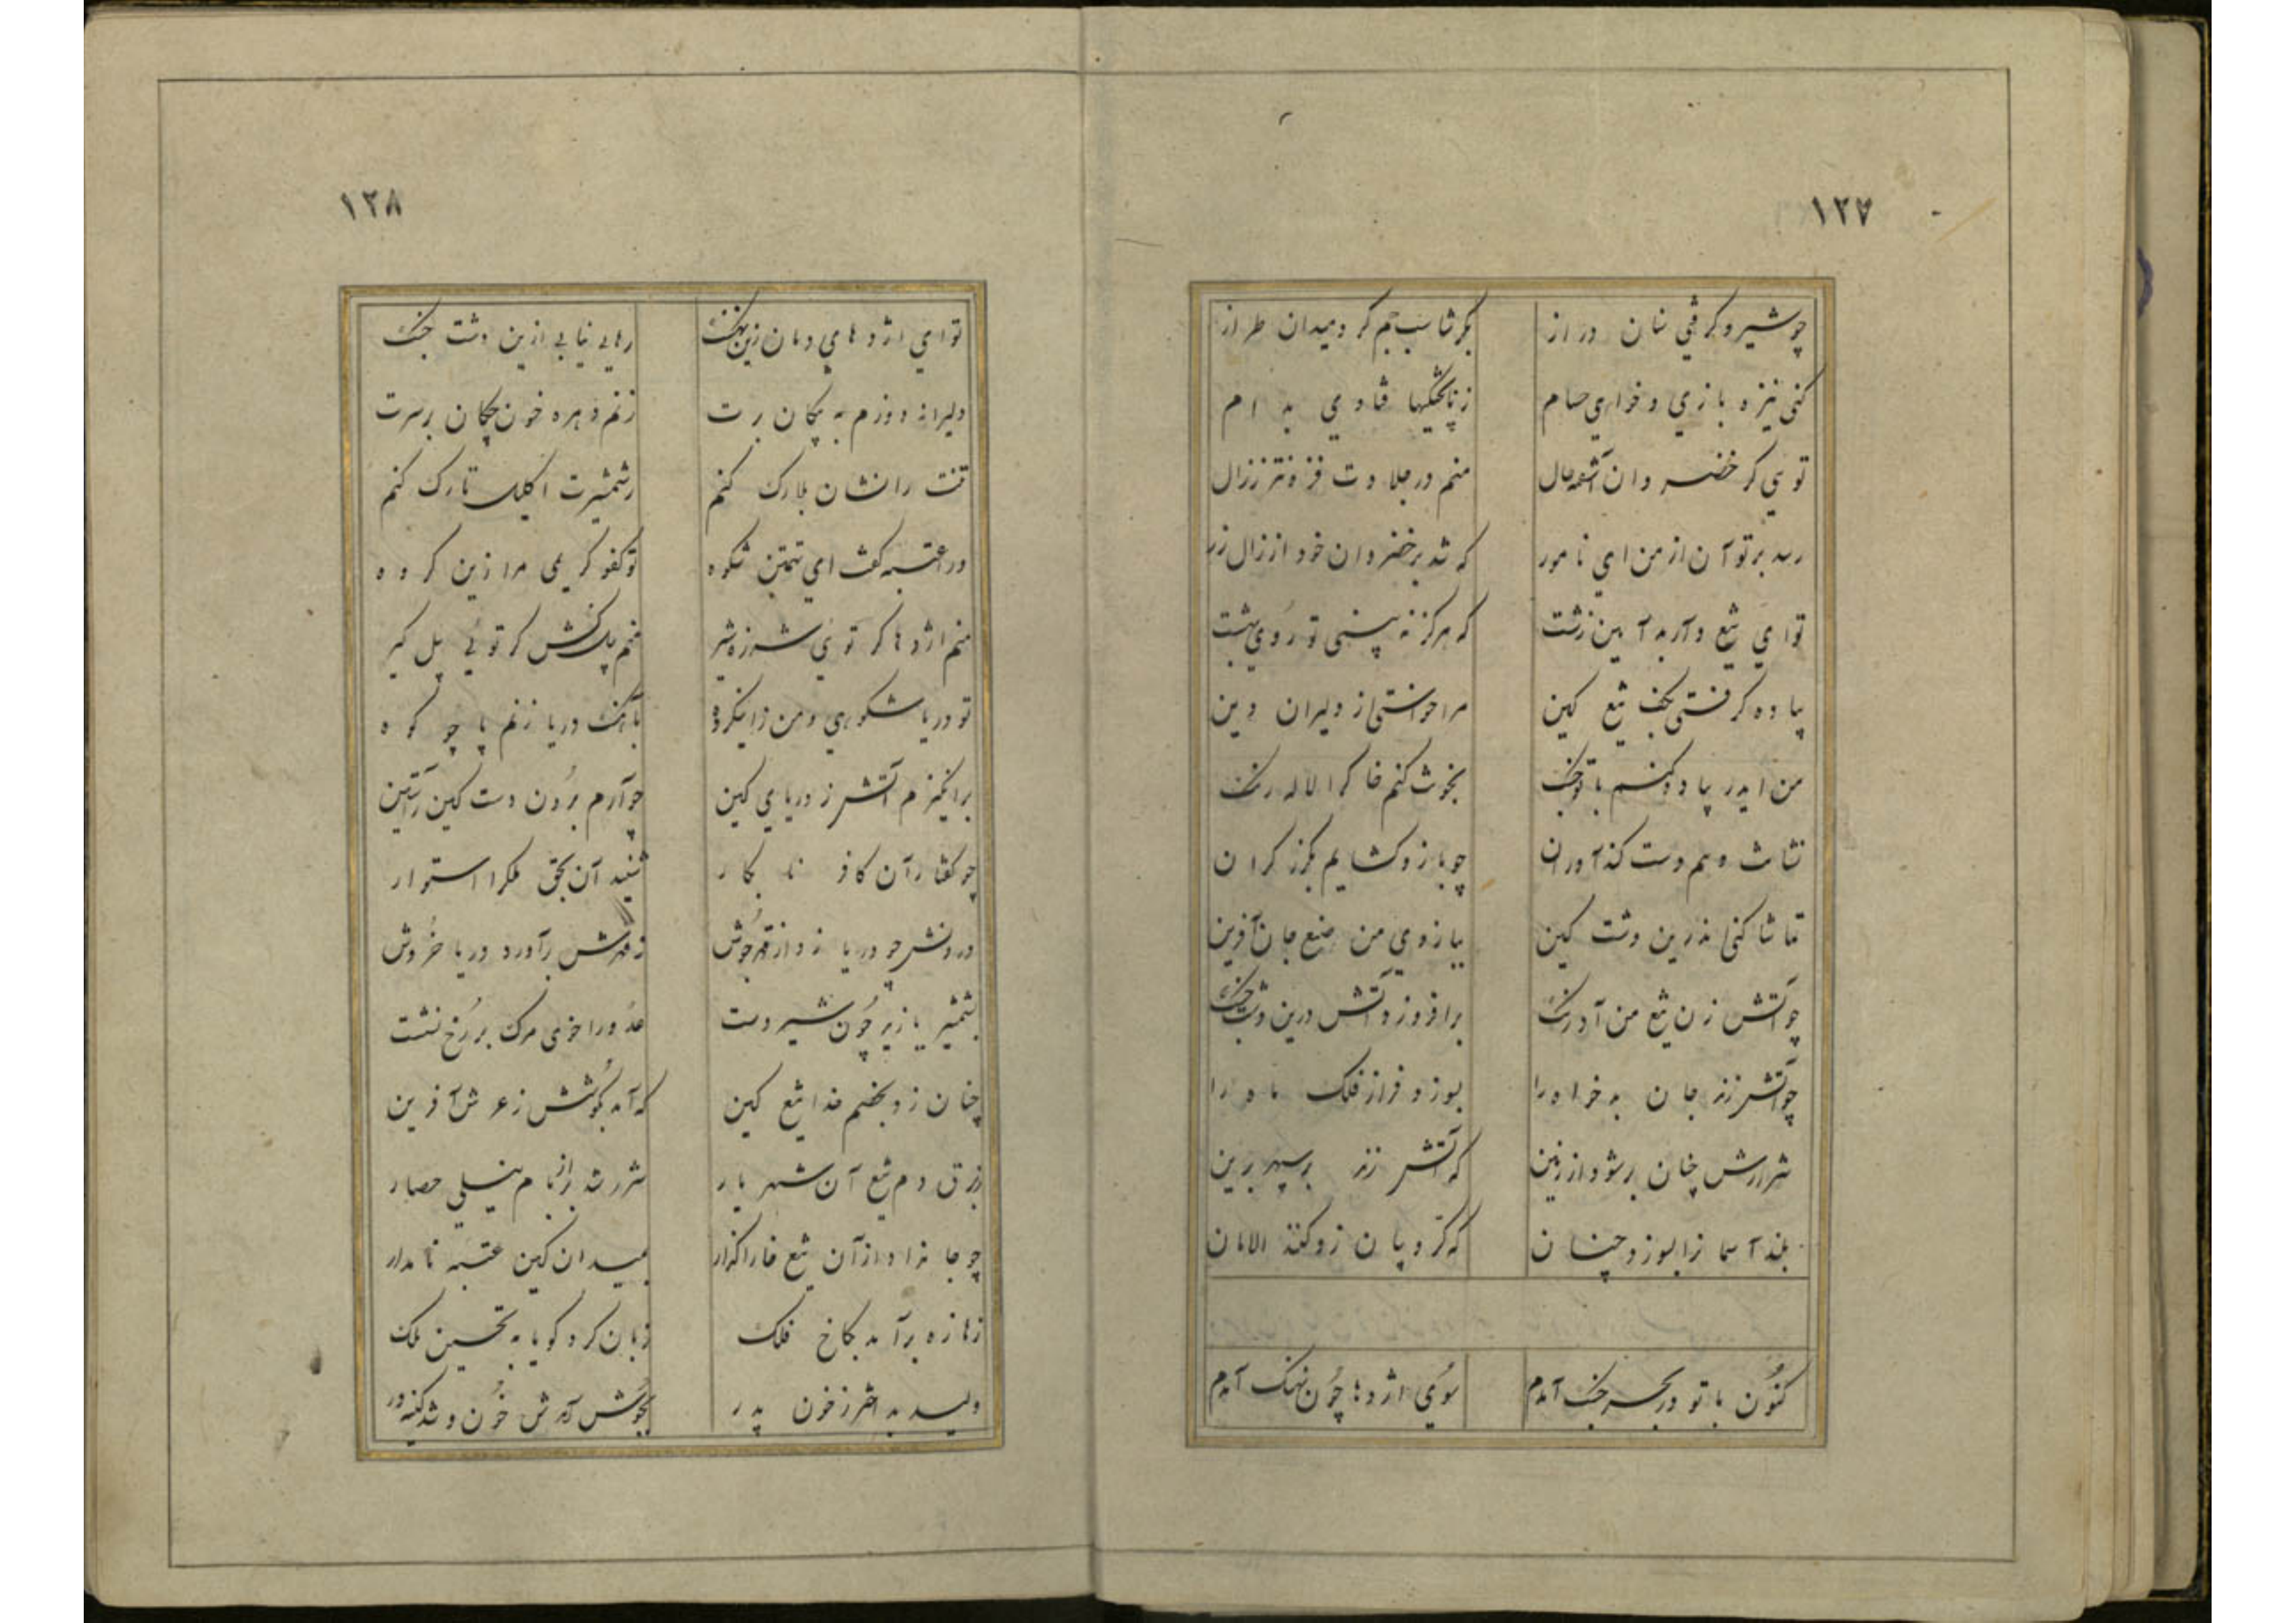 ١٢٧
چو شیرو گرفتی سنان دراز بگرشاسب جم گرد میدان طراز
کنی نیزه بازی و خواری حسام ز ناپختگیها فتادی به دام
توی گر خضر وان آشفته حال منم در جلادت فزونتر ززال
رسد بر تو آن از من ای نامور که شد بر خضروان خود از زال زر
تو ای تیغ وآر به آیین زشت که هرگز نه بینی تو روی بهشت
پیاده گرفتی بکف تیغ کین مرا خواستی از دلیران دین
من ایدر پیاده کنم با تو جنگ بخونت کنم خاک را لاله رنگ
نشانت دهم دست کندآوران چو بازو گشایم بگرز گران
تماشا کنی اندرین دشت کین ببازوی من صنع جان آفرین
چو آتش زن تیغ من آذرنگ برافروزد آتش درین دشت جنگ
چو آتش زند جان بدخواه را بسوزد فراز فلک ماه را
شرارش چنان بر شود از زمین که آتش زند بر سپهر برین
بلند آسمانرا بسوزد چنان که کروبیان زو کنند الامان
کنون با تو در بحر جنگ آمدم سوی اژدها چون نهنگ آمدم
١٢٨
تو ای اژدهای دمان زین نهنگ رهایی نیابی ازین دشت جنگ
دلیرانه دوزم به پیکان برت زنم دهره خون چکان بر سرت
تنت را نشان بلارک کنم ز شمشیرت اکلیل تارک کنم
ورا عتبه گفت ای تهمتن شکوه تو کفو کریمی مرا زین گروه
منم اژدها گر توی شرزه شیر منم پیل کش گر توئی پیل گیر
تو دریا شکوهی و من زاین گروه بآهنگ دریا زنم پا چو کوه
برانگیزم آتش ز دریای کین چو آرم برون دست کین ز آستین
چو گفتار آن کافر نابکار شنید آن بحق ملک را استوار
درونش چو دریا زد از قهر جوش ز قهرش برآورد دریا خروش
بشمشیر یازید چون شیر دست عدو را خوی مرگ بر رخ نشست
چنان زد بخصم خدا تیغ کین که آمد بگوشش ز عرش آفرین
ز برق دم تیغ آن شهریار شرر شد ازبام نیلی حصار
چو جا نداد از آن تیغ خارا گذار بمیدان کین عتبه نامدار
زهازه برآمد بکاخ فلک زبان کرد گویا به تحسین ملک
ولید بد اختر ز خون پدر بجوش آمدش خون و شد کینه ور